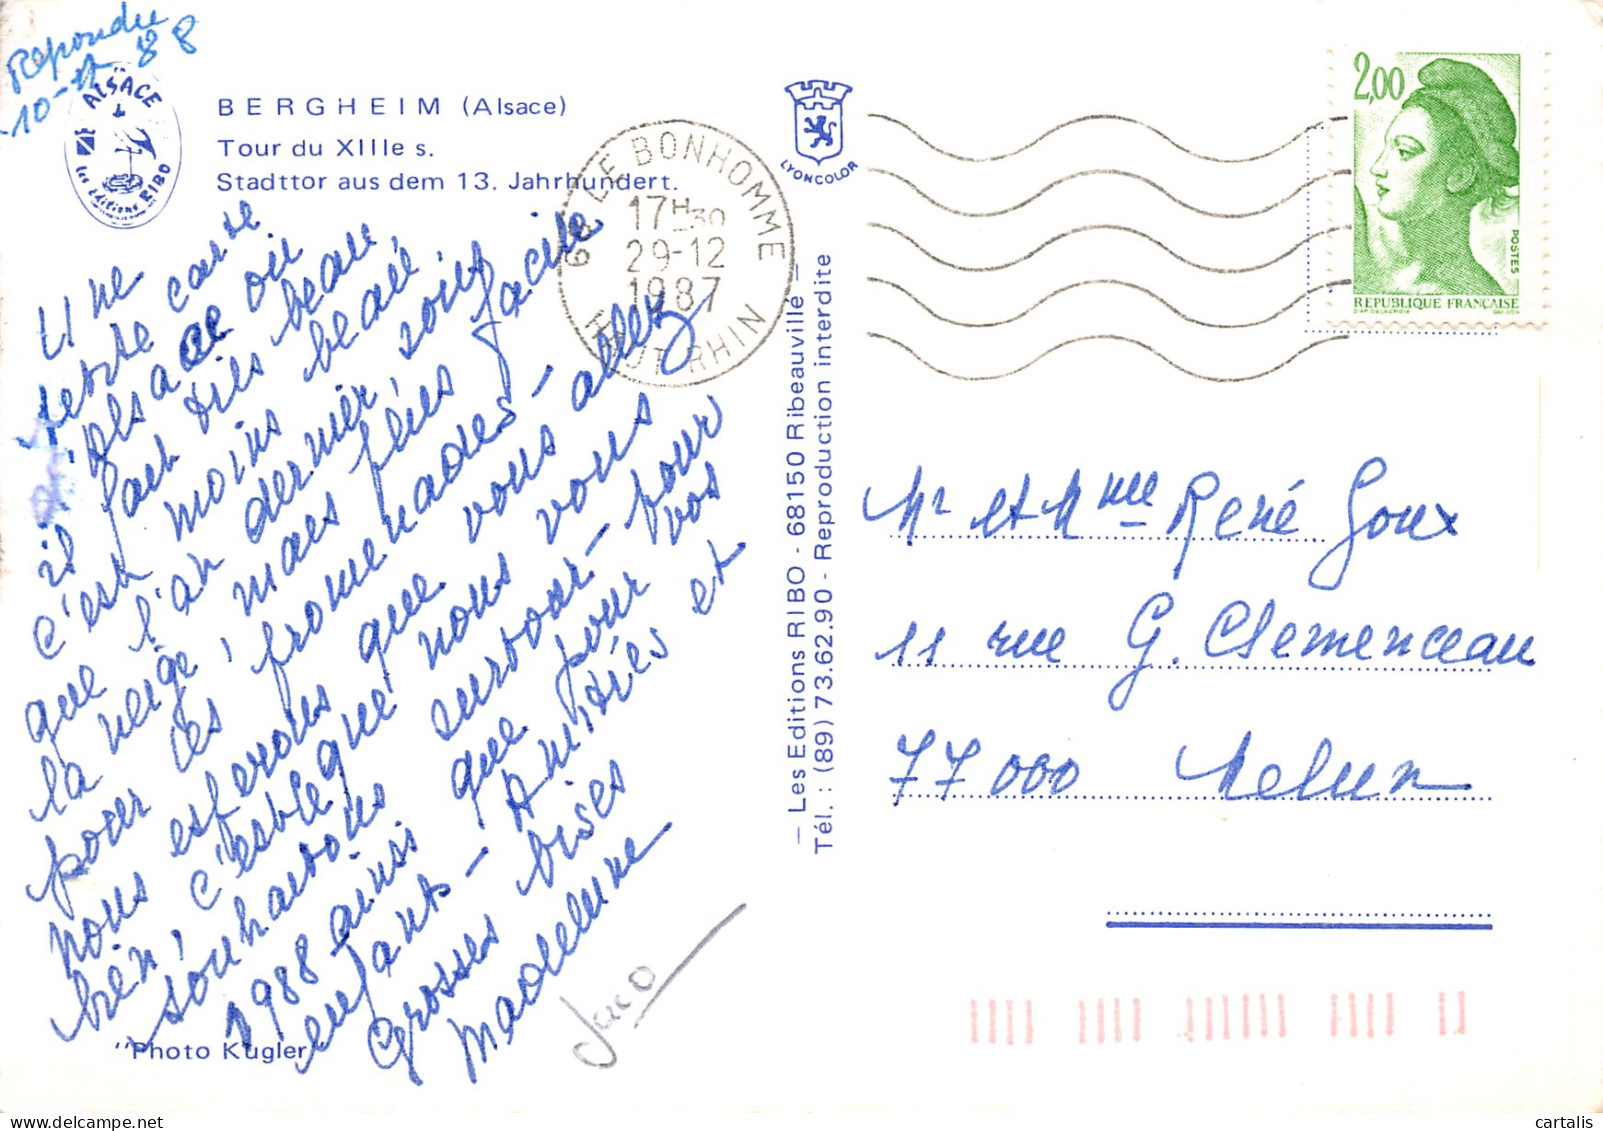 Repondu
10-1-88
ALSACE
les éditions RIBO
BERGHEIM (Alsace)
Tour du XIIIe s.
Stadttor aus dem 13. Jahrhundert.
Une
petite carte
d'Alsace où
il fait très beau
c'est moins beau
que l'an dernier soit
la neige, mais plus facile
pour les promenades -
nous espérons que vous allez
bien, c'est que nous vous
souhaitons surtout - pour
1988 ainsi que pour vos
enfants - Amitiés et
Grosses bises
Madeleine
Jaco
"Photo Kugler
68 LE BONHOMME
17H30
29-12
1987
HAUT-RHIN
LYONCOLOR
— Les Editions RIBO - 68150 Ribeauvillé —
Tél. : (89) 73.62.90 - Reproduction interdite
2,00
POSTES
REPUBLIQUE FRANÇAISE
D'AP. DELACROIX
GANDON
Mr et Mme René Joux
11 rue G. Clemenceau
77000 Melun
cartalis